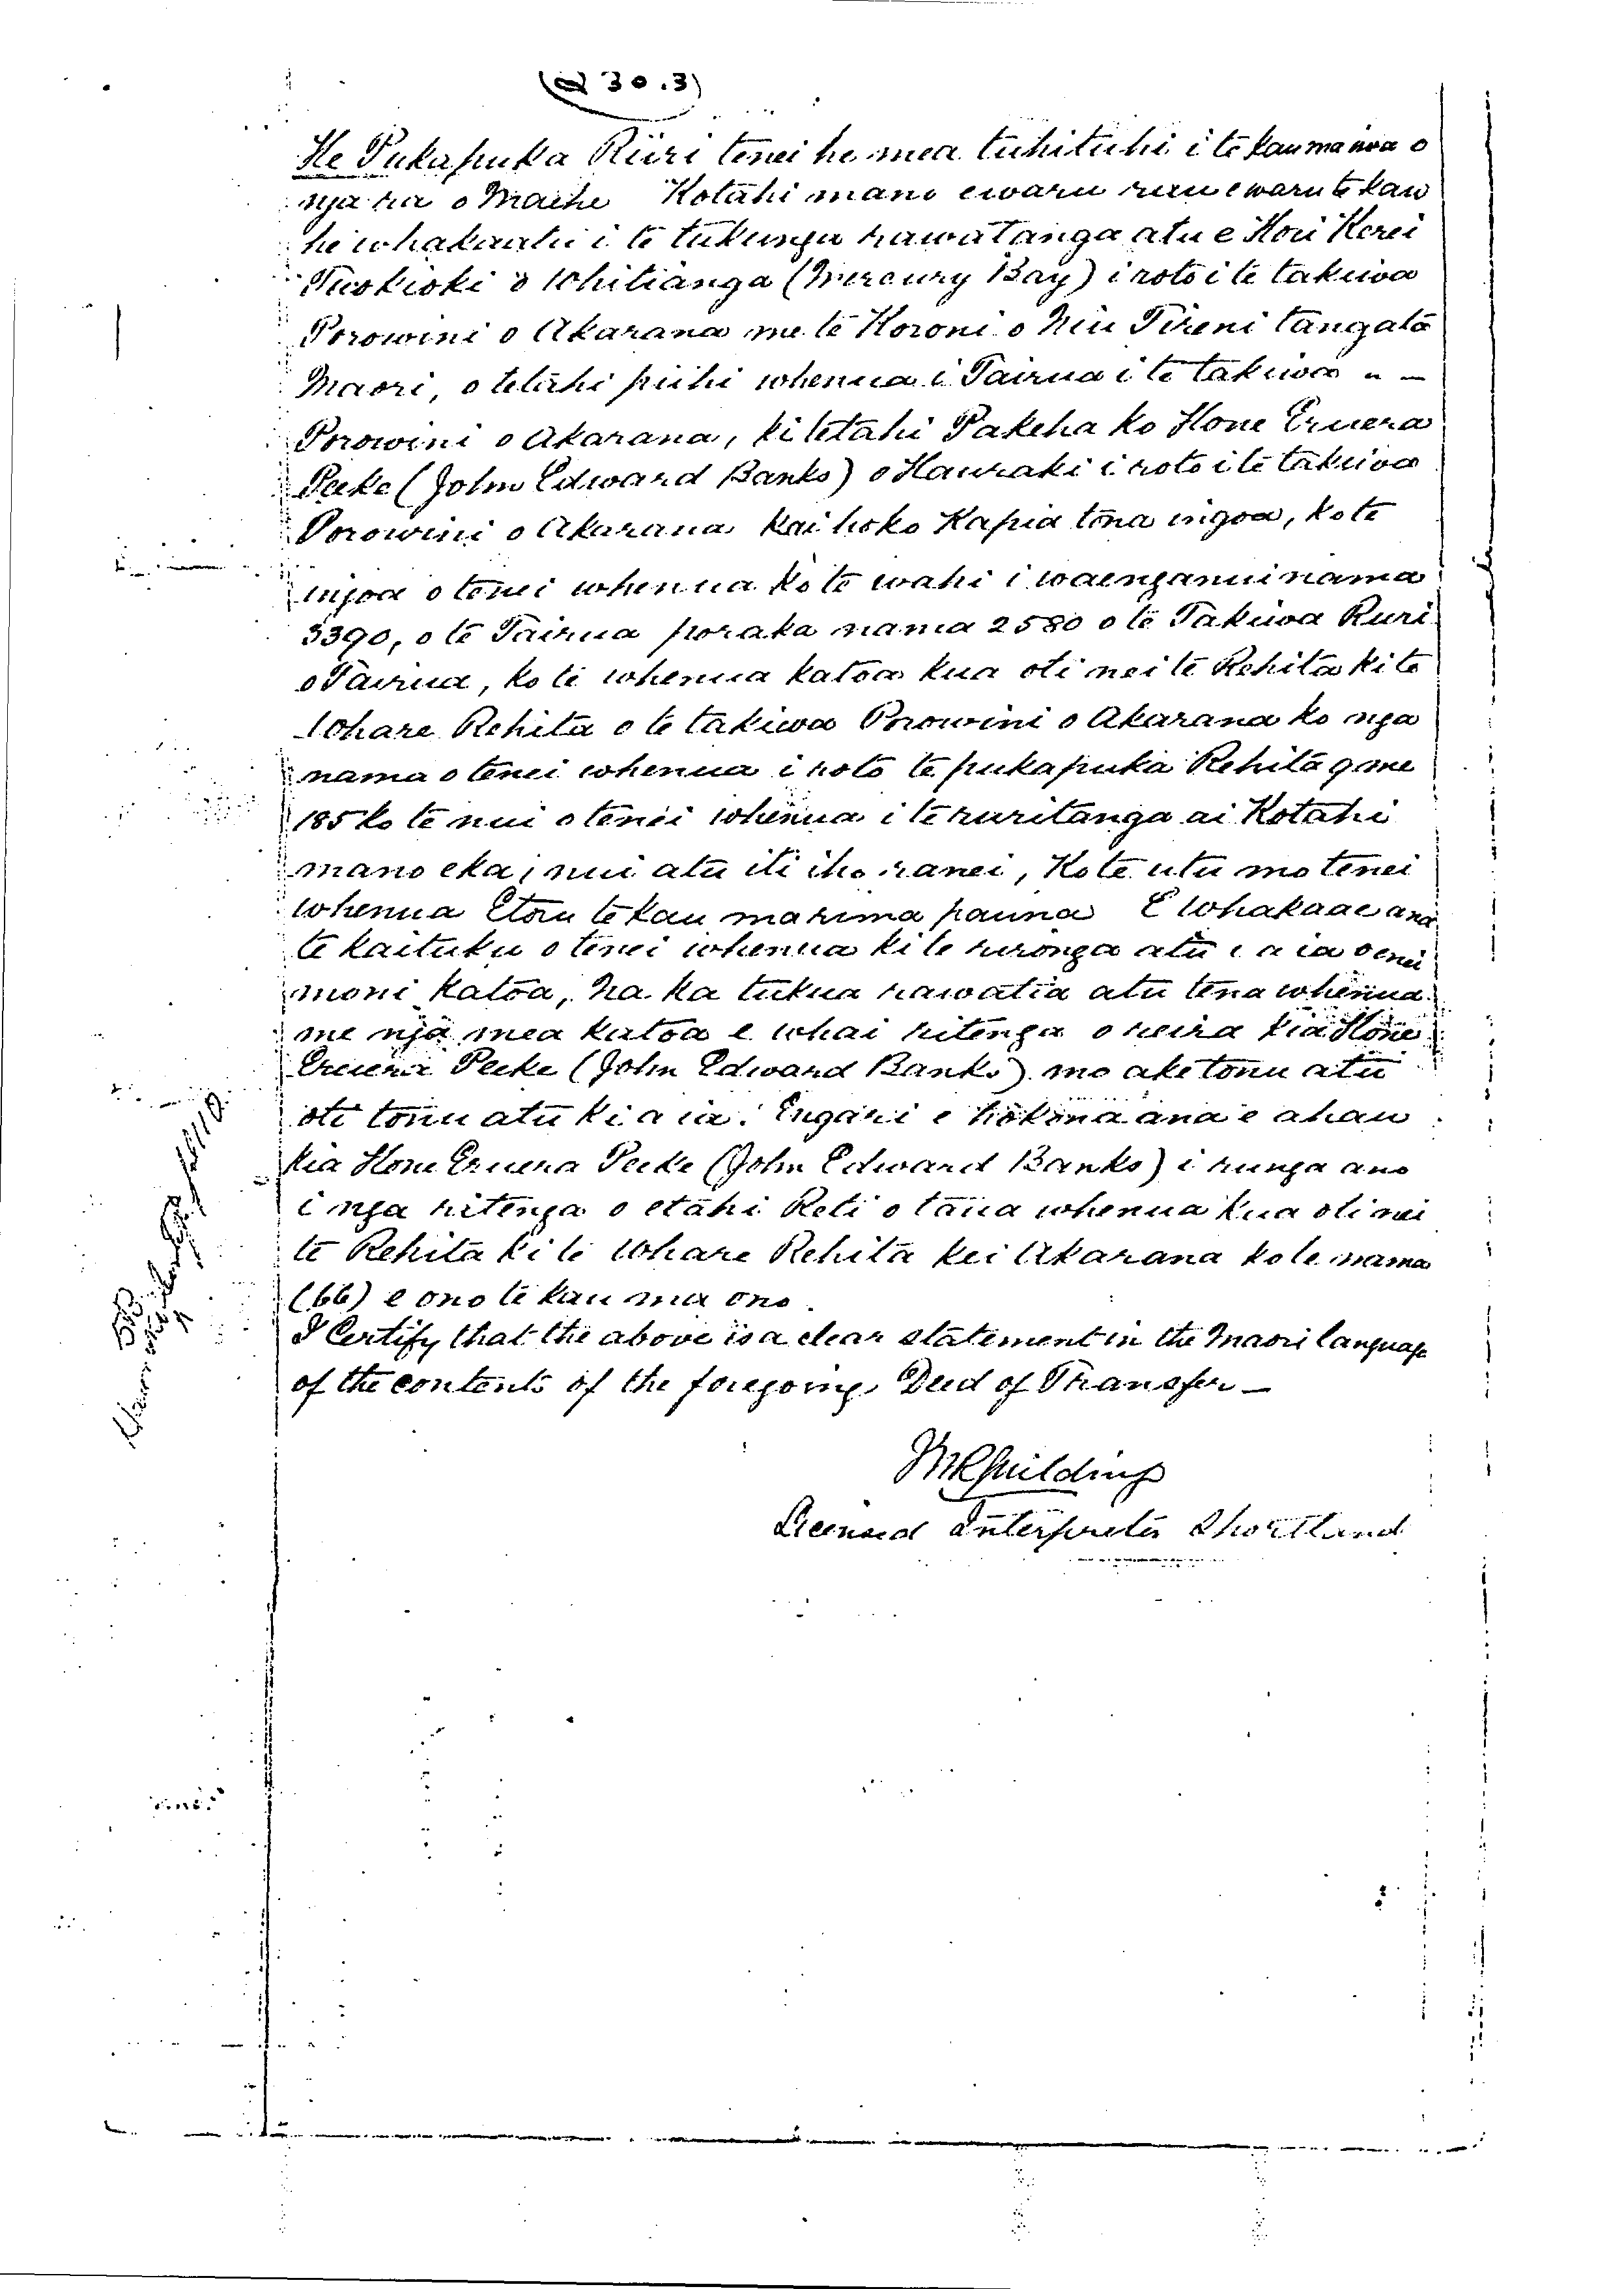 (d 30.3)
He Pukapuka Riiri tenei he mea tuhituhi i te kau ma iwa o
nga ra o Maehe Kotahi mano e waru rau e waru te kau
he whakaatu i te tukunga rawatanga atu e Hori Kerei
Tuokioki o Whitianga (Mercury Bay) i roto i te takiwa
Porowini o Akarana me te Koroni o Niu Tireni tangata
Maori, o tetahi piihi whenua i Tairua i te takiwa " –
Porowini o Akarana, ki tetahi Pakeha ko Hone Eruera
Peeke (John Edward Banks) o Hauraki i roto i te takiwa
Porowini o Akarana kai hoko Kapia tona ingoa, ko te
ingoa o tenei whenua ko te wahi i waenganui nama
3390, o te Tairua poraka nama 2580 o te Takiwa Ruri
o Tairua, ko te whenua katoa kua oti nei te Rehita ki te
Whare Rehita o te takiwa Porowini o Akarana ko nga
nama o tenei whenua i roto te pukapuka Rehita 9 me
185 ko te nui o tenei whenua i te ruritanga ai Kotahi
mano eka, nui atu iti iho ranei, Ko te utu mo tenei
whenua Etoru te kau ma rima pauna E whakaae ana
te kaituku o tenei whenua ki te rironga atu i a ia o enei
moni katoa, Na ka tukua rawatia atu tena whenua
me nga mea katoa e whai ritenga o reira kia Hone
Eruera Peeke (John Edward Banks) mo ake tonu atu
oti tonu atu ki a ia. Engari e hokona ana e ahau
kia Hone Eruera Peeke (John Edward Banks) i runga ano
i nga ritenga o etahi Reti o taua whenua kua oti nei
te Rehita ki te Whare Rehita kei Akarana ko te nama
(66) e ono te kau ma ono.
I Certify that the above is a clear statement in the Maori language
of the contents of the foregoing Deed of Transfer –
Guilding
Licensed Interpreter Shortland